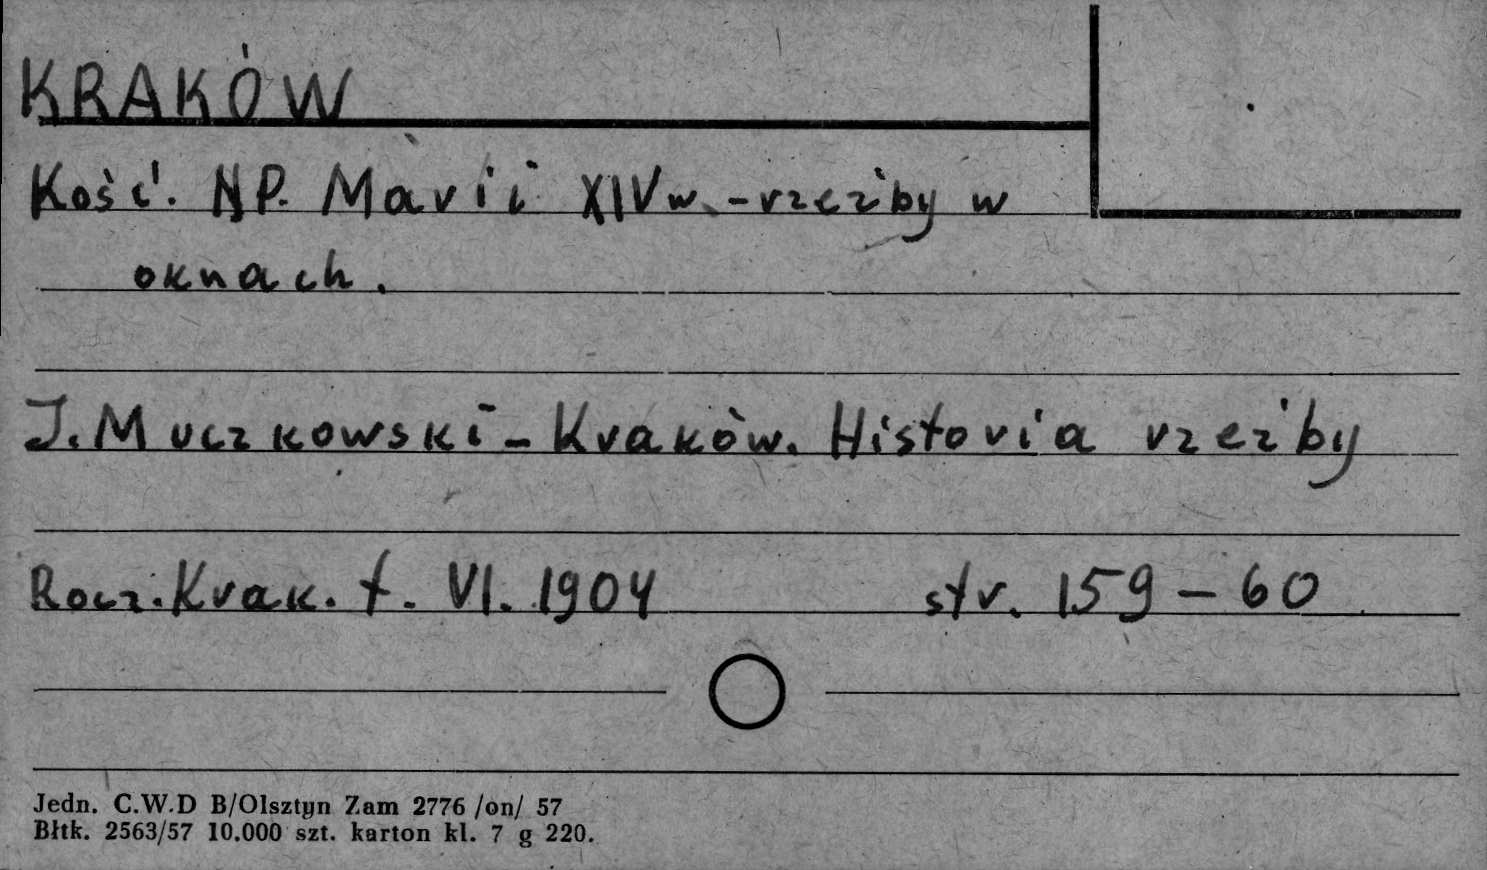 KRAKÓW
Kość. NP. Marii XIV w. - rzeźby w
oknach.
J. Muczkowski - Kraków. Historia rzeźby
Rocz. Krak. t. VI. 1904 str. 159 - 60
Jedn. C.W.D B/Olsztyn Zam 2776 /on/ 57
Błtk. 2563/57 10.000 szt. karton kl. 7 g 220.